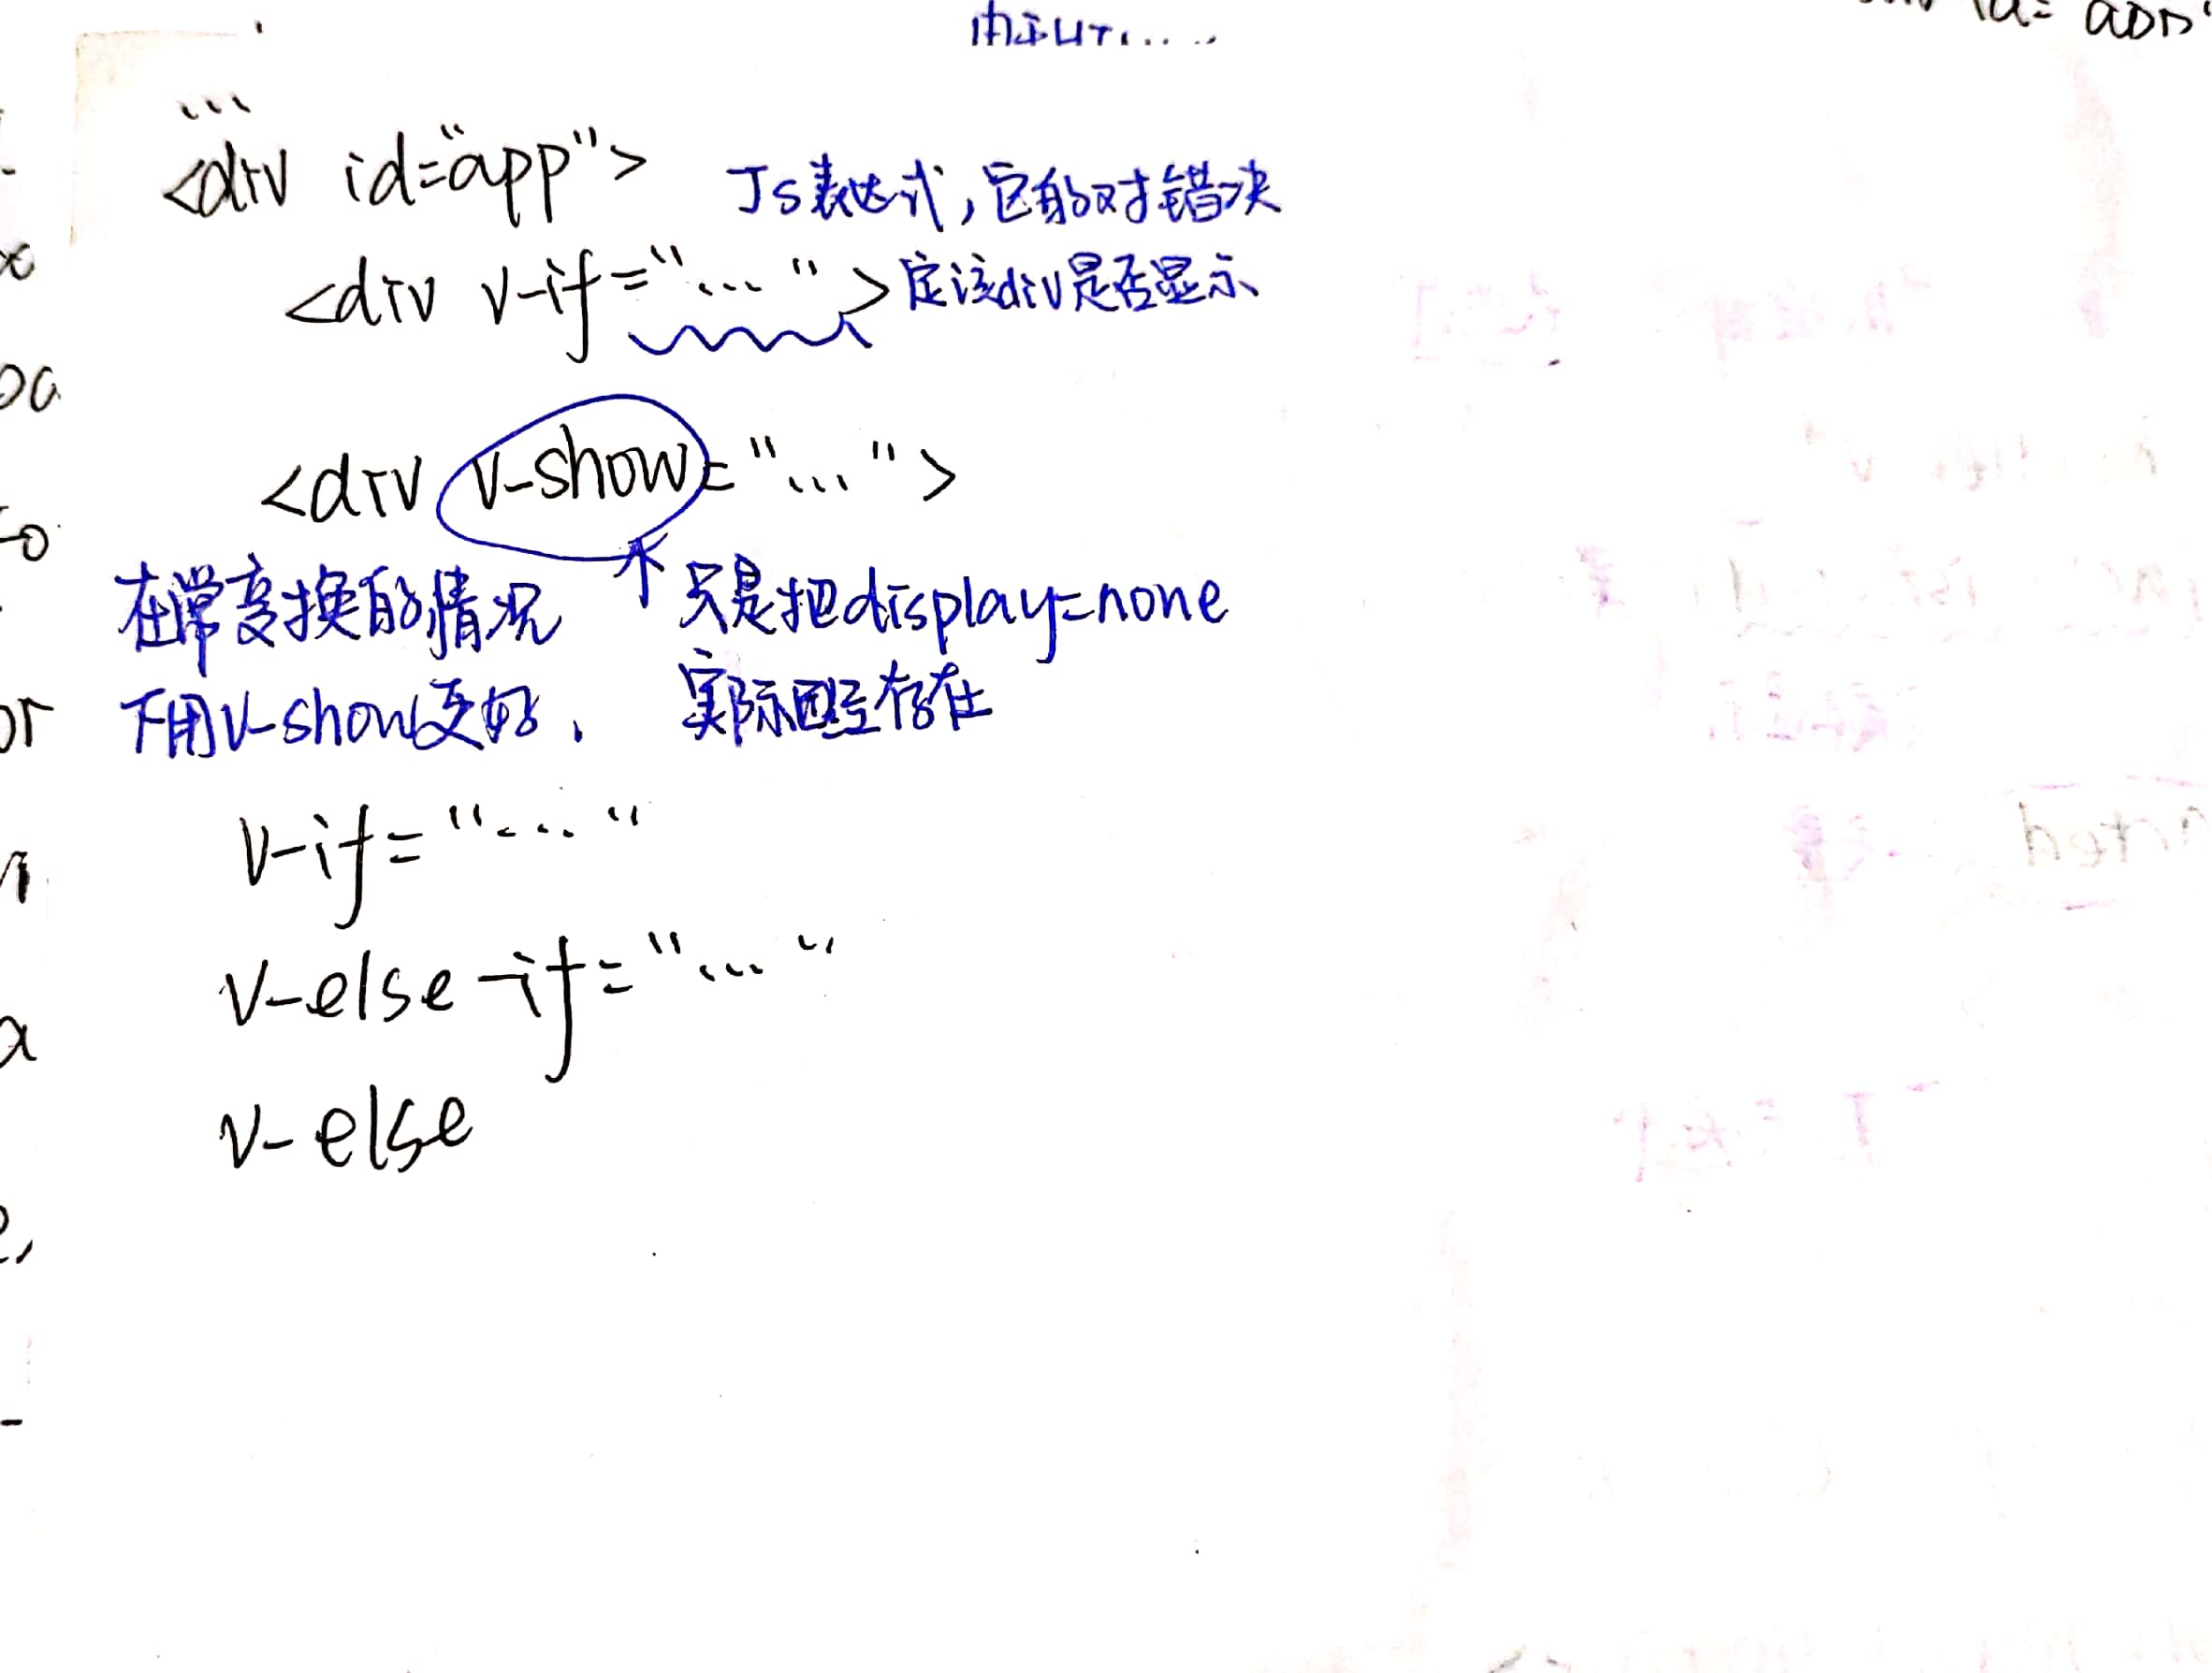 ...
<div id="app">
JS表达式,它的对错决
<div v-if="...">定该div是否显示
<div v-show="...">
在常变换的情况
下用v-show更好.
只是把display=none
实际已经存在
v-if="..."
v-else-if="..."
v-else